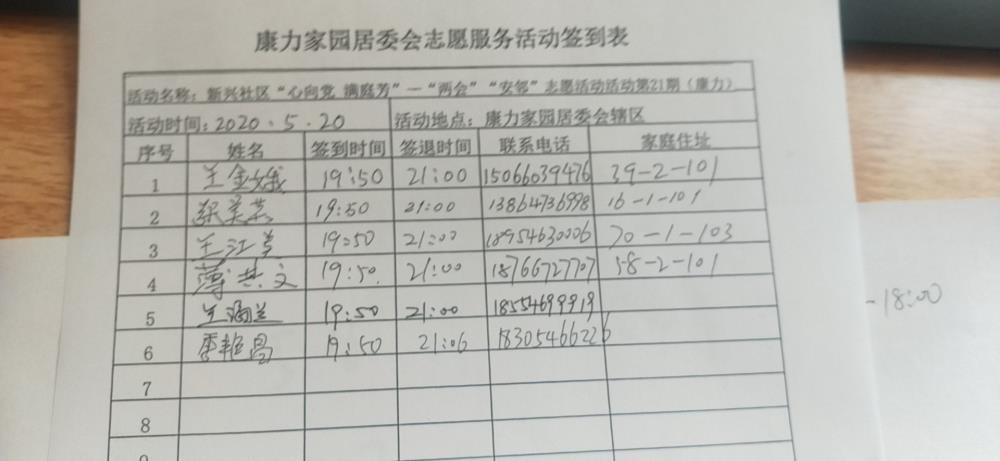 康力家园居委会志愿服务活动签到表
活动名称：新兴社区“心向党 满庭芳”一“两会”“安邻”志愿活动活动第21期（康力）
活动时间：2020.5.20 活动地点：康力家园居委会辖区
序号 姓名 签到时间 签退时间 联系电话 家庭住址
1 王金娥 19:50 21:00 15066039476 39-2-101
2 19:50 21:00 13864736998 16-1-101
3 王江 19:50 21:00 18954630006 70-1-103
4 薄其文 19:50. 21:00 18766727707 58-2-101
5 19:50 21:00 18554699919
6 19:50 21:06 18305466226
7
8
-18:00